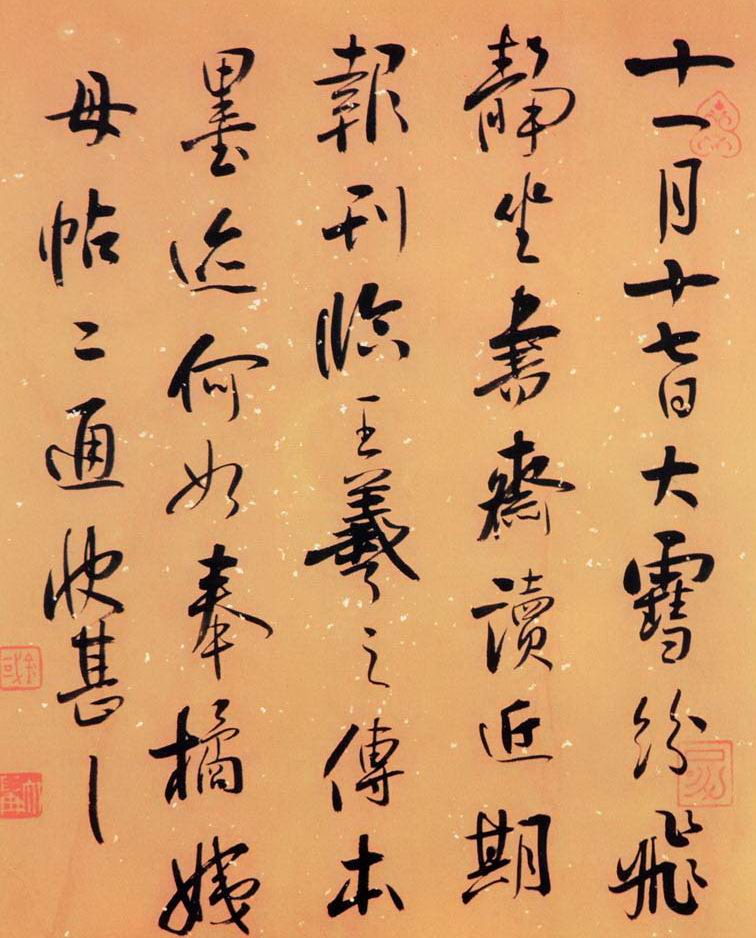 十一月廿七日大雪紛飛
靜坐書齋讀近期
報刊臨王羲之傳本
墨迹何如奉橘姨
母帖二通快甚